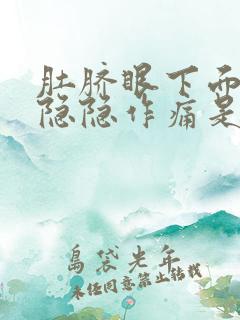 肚脐眼下面
隐隐作痛是
岛袋光年
未经同意禁止转载